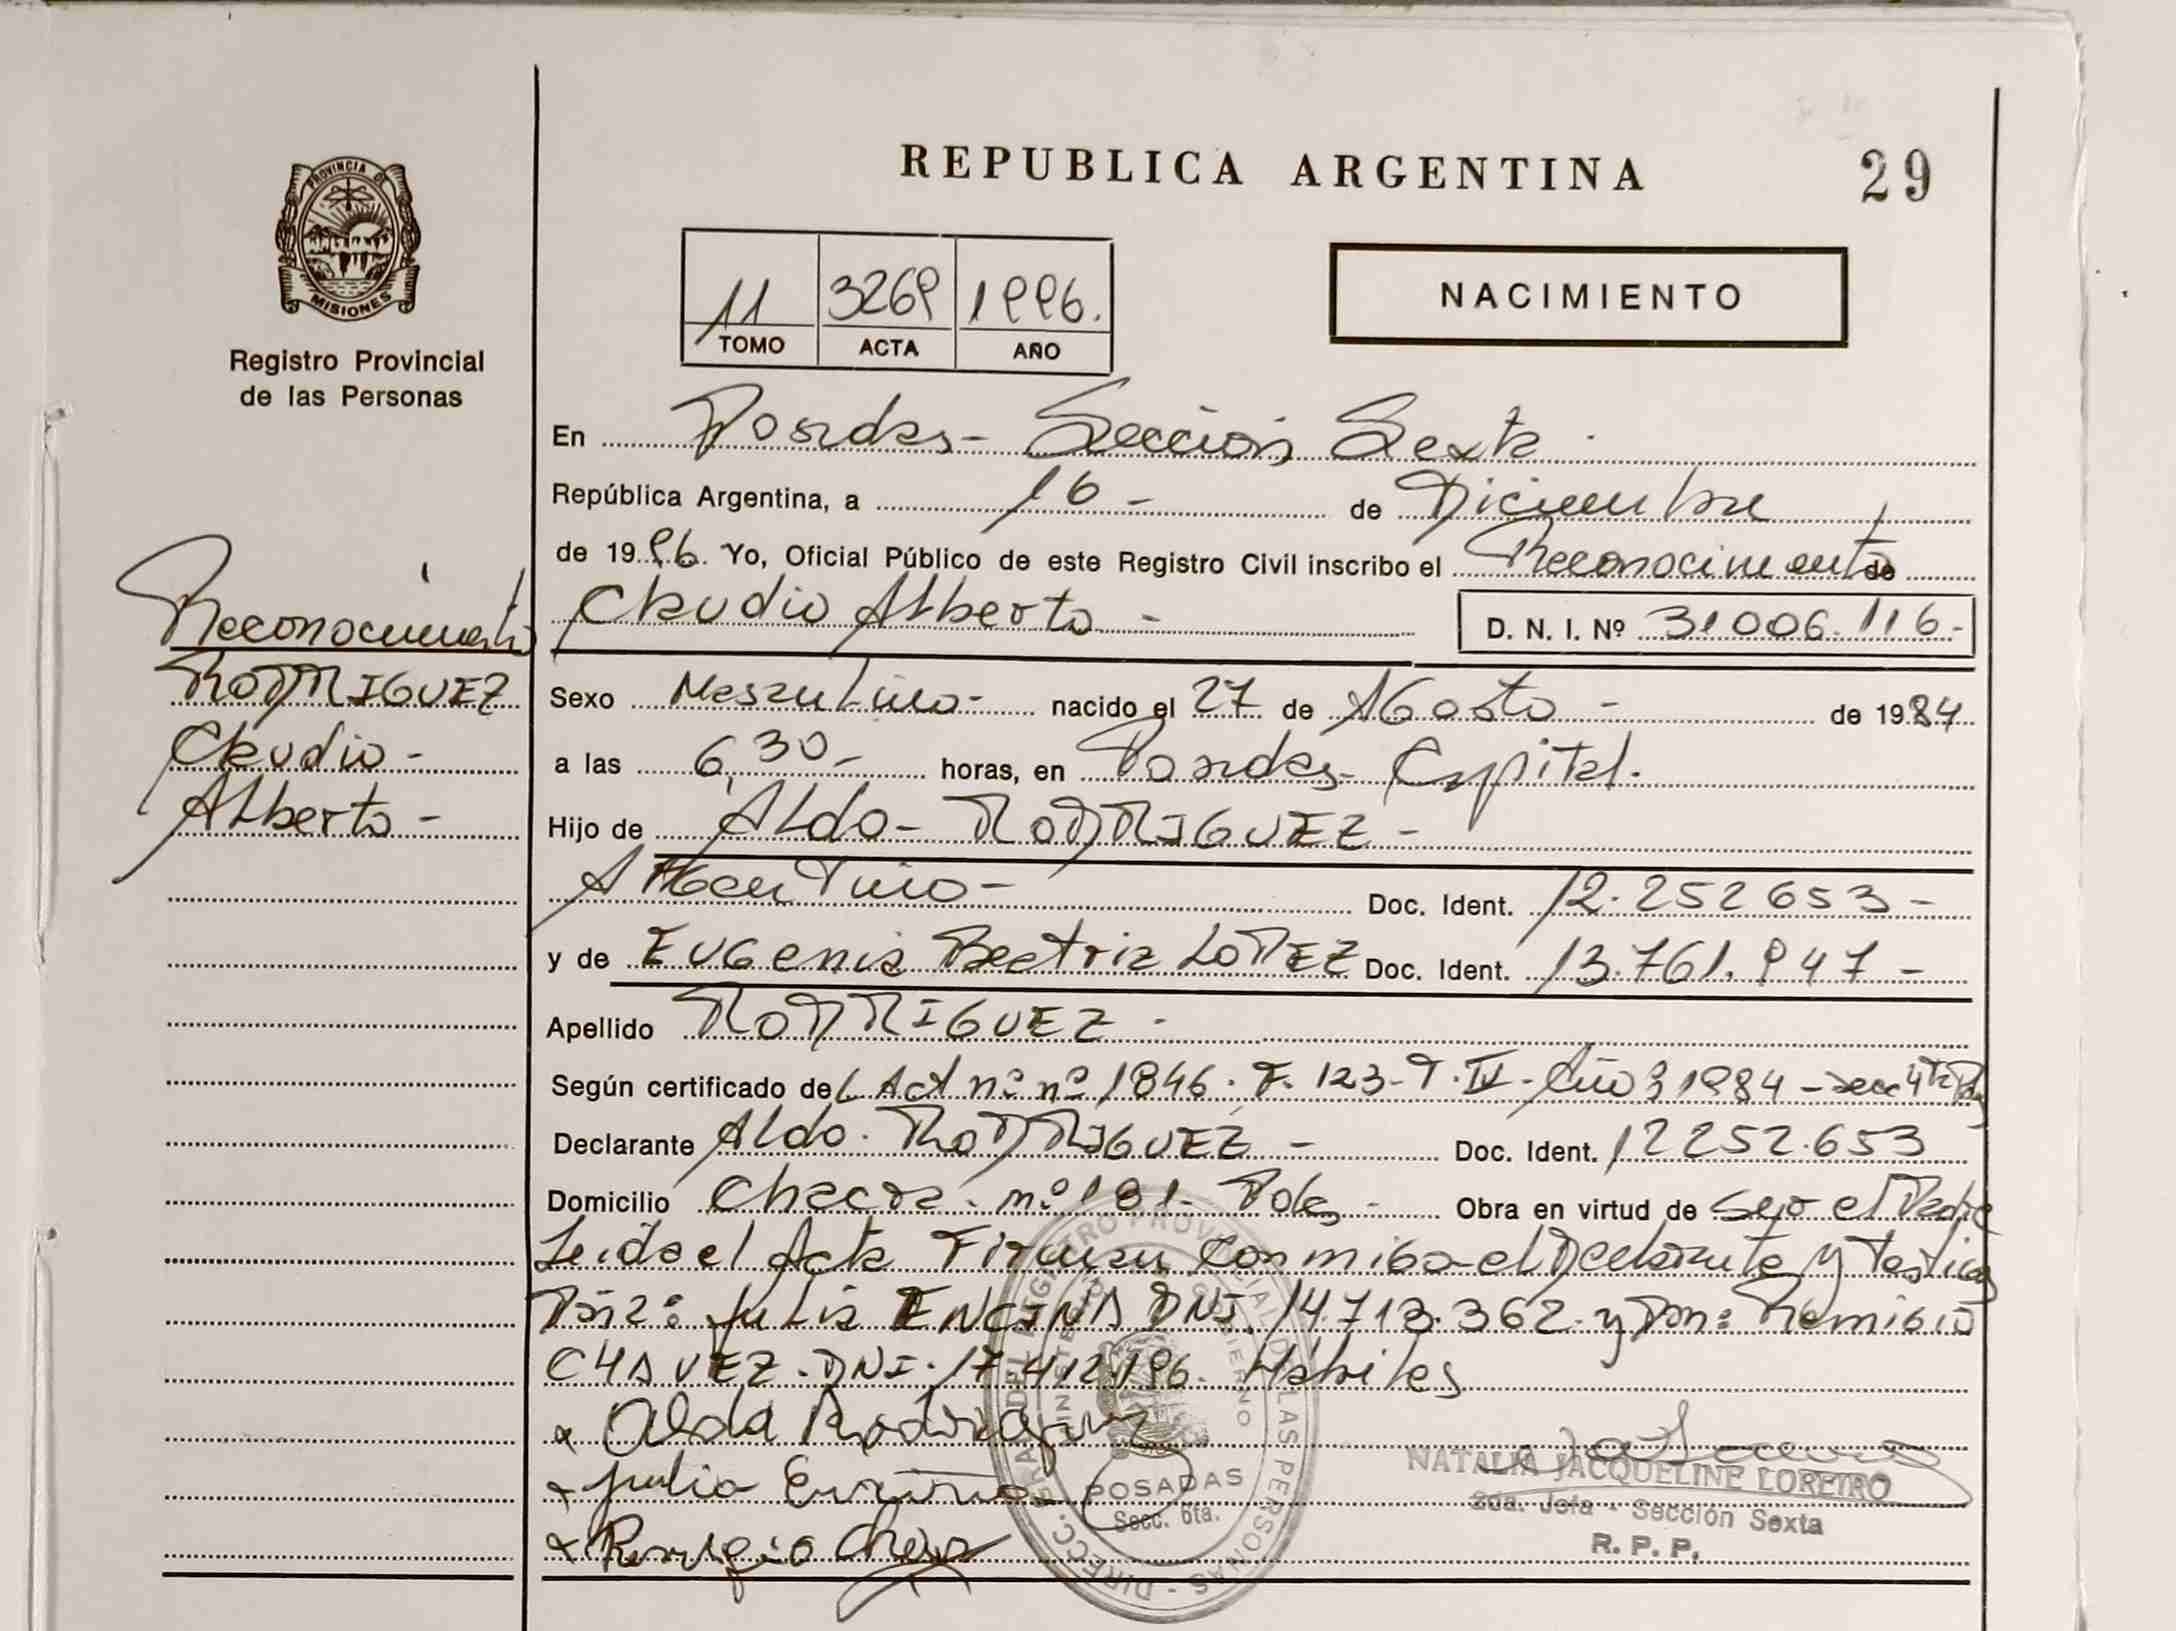 REPUBLICA ARGENTINA
29
PROVINCIA DE
MISIONES
Registro Provincial
de las Personas
11 3269 1996.
TOMO ACTA AÑO
NACIMIENTO
En Posadas - Sección Sexta
República Argentina, a 16 - de Diciembre
de 1996. Yo, Oficial Público de este Registro Civil inscribo el Reconocimiento de
Claudio Alberto - D. N. I. Nº 31.006.116.-
Reconocimiento
RODRIGUEZ
Claudio -
Alberto -
Sexo Masculino - nacido el 27 de Agosto - de 1984
a las 6,30 - horas, en Posadas - Capital.
Hijo de Aldo - RODRIGUEZ -
Argentino - Doc. Ident. 12.252653 -
y de Eugenia Beatriz LOPEZ Doc. Ident. 13.761.947 -
Apellido RODRIGUEZ -
Según certificado del Acta nº 1846. F. 123 - T. IV - Año 1984 - Secc 4ta
Declarante Aldo. RODRIGUEZ - Doc. Ident. 12252.653
Domicilio Chacra - nº 181 - Pdas - Obra en virtud de ser el Padre
Leida el Acta Firman conmigo el Declarante y Testigos
Julia ENCINA DNI. 14.713.362 y Don: Remigio
CHAVEZ - DNI. 17.412.196. Hábiles
x Aldo Rodriguez
x Julia Encina
x Remigio Chavez
DIRECC. GRAL DEL REGISTRO PROVINCIAL DE LAS PERSONAS
MINISTERIO DE GOBIERNO
POSADAS
Secc. 6ta.
NATALIA JACQUELINE LOREIRO
2da. Jefa - Sección Sexta
R. P. P.